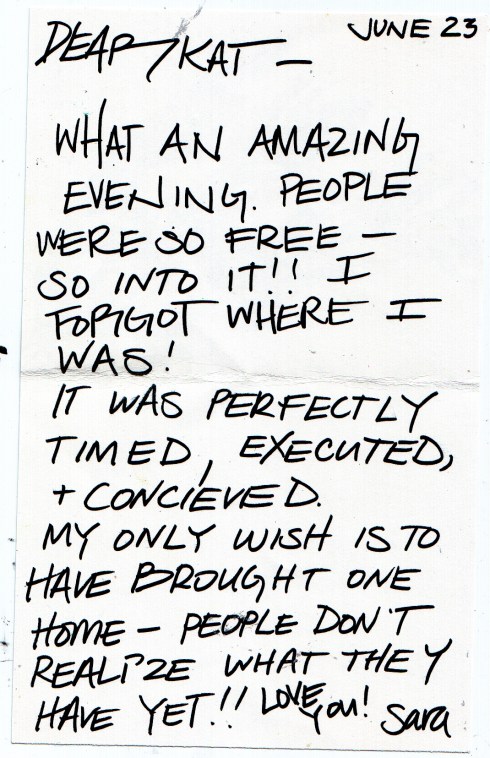 JUNE 23
DEAR KAT —
WHAT AN AMAZING
EVENING. PEOPLE
WERE SO FREE —
SO INTO IT!! I
FORGOT WHERE I
WAS!
IT WAS PERFECTLY
TIMED, EXECUTED,
+ CONCIEVED.
MY ONLY WISH IS TO
HAVE BROUGHT ONE
HOME — PEOPLE DON'T
REALIZE WHAT THEY
HAVE YET!! LOVE YOU! Sara